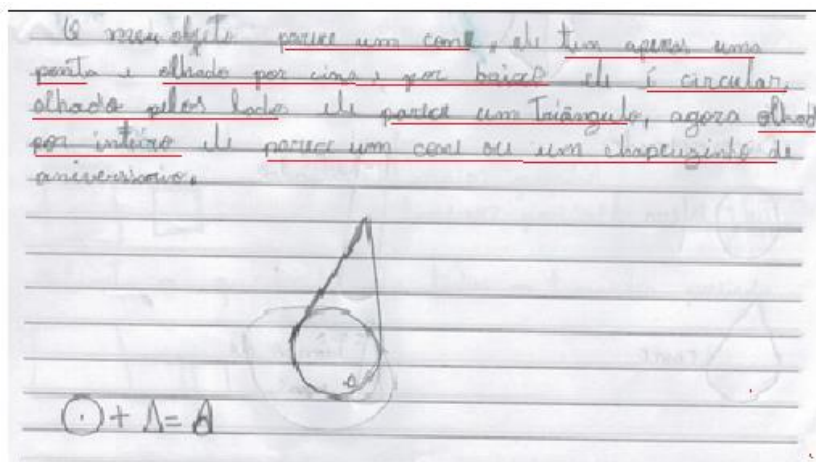 O meu objeto parece um cone, ele tem apenas uma
ponta e olhado por cima, por baixo ele é circular,
olhado pelos lados ele parece um Triângulo, agora olhado
por inteiro ele parece um cone ou um chapeuzinho de
aniversario.
+ =